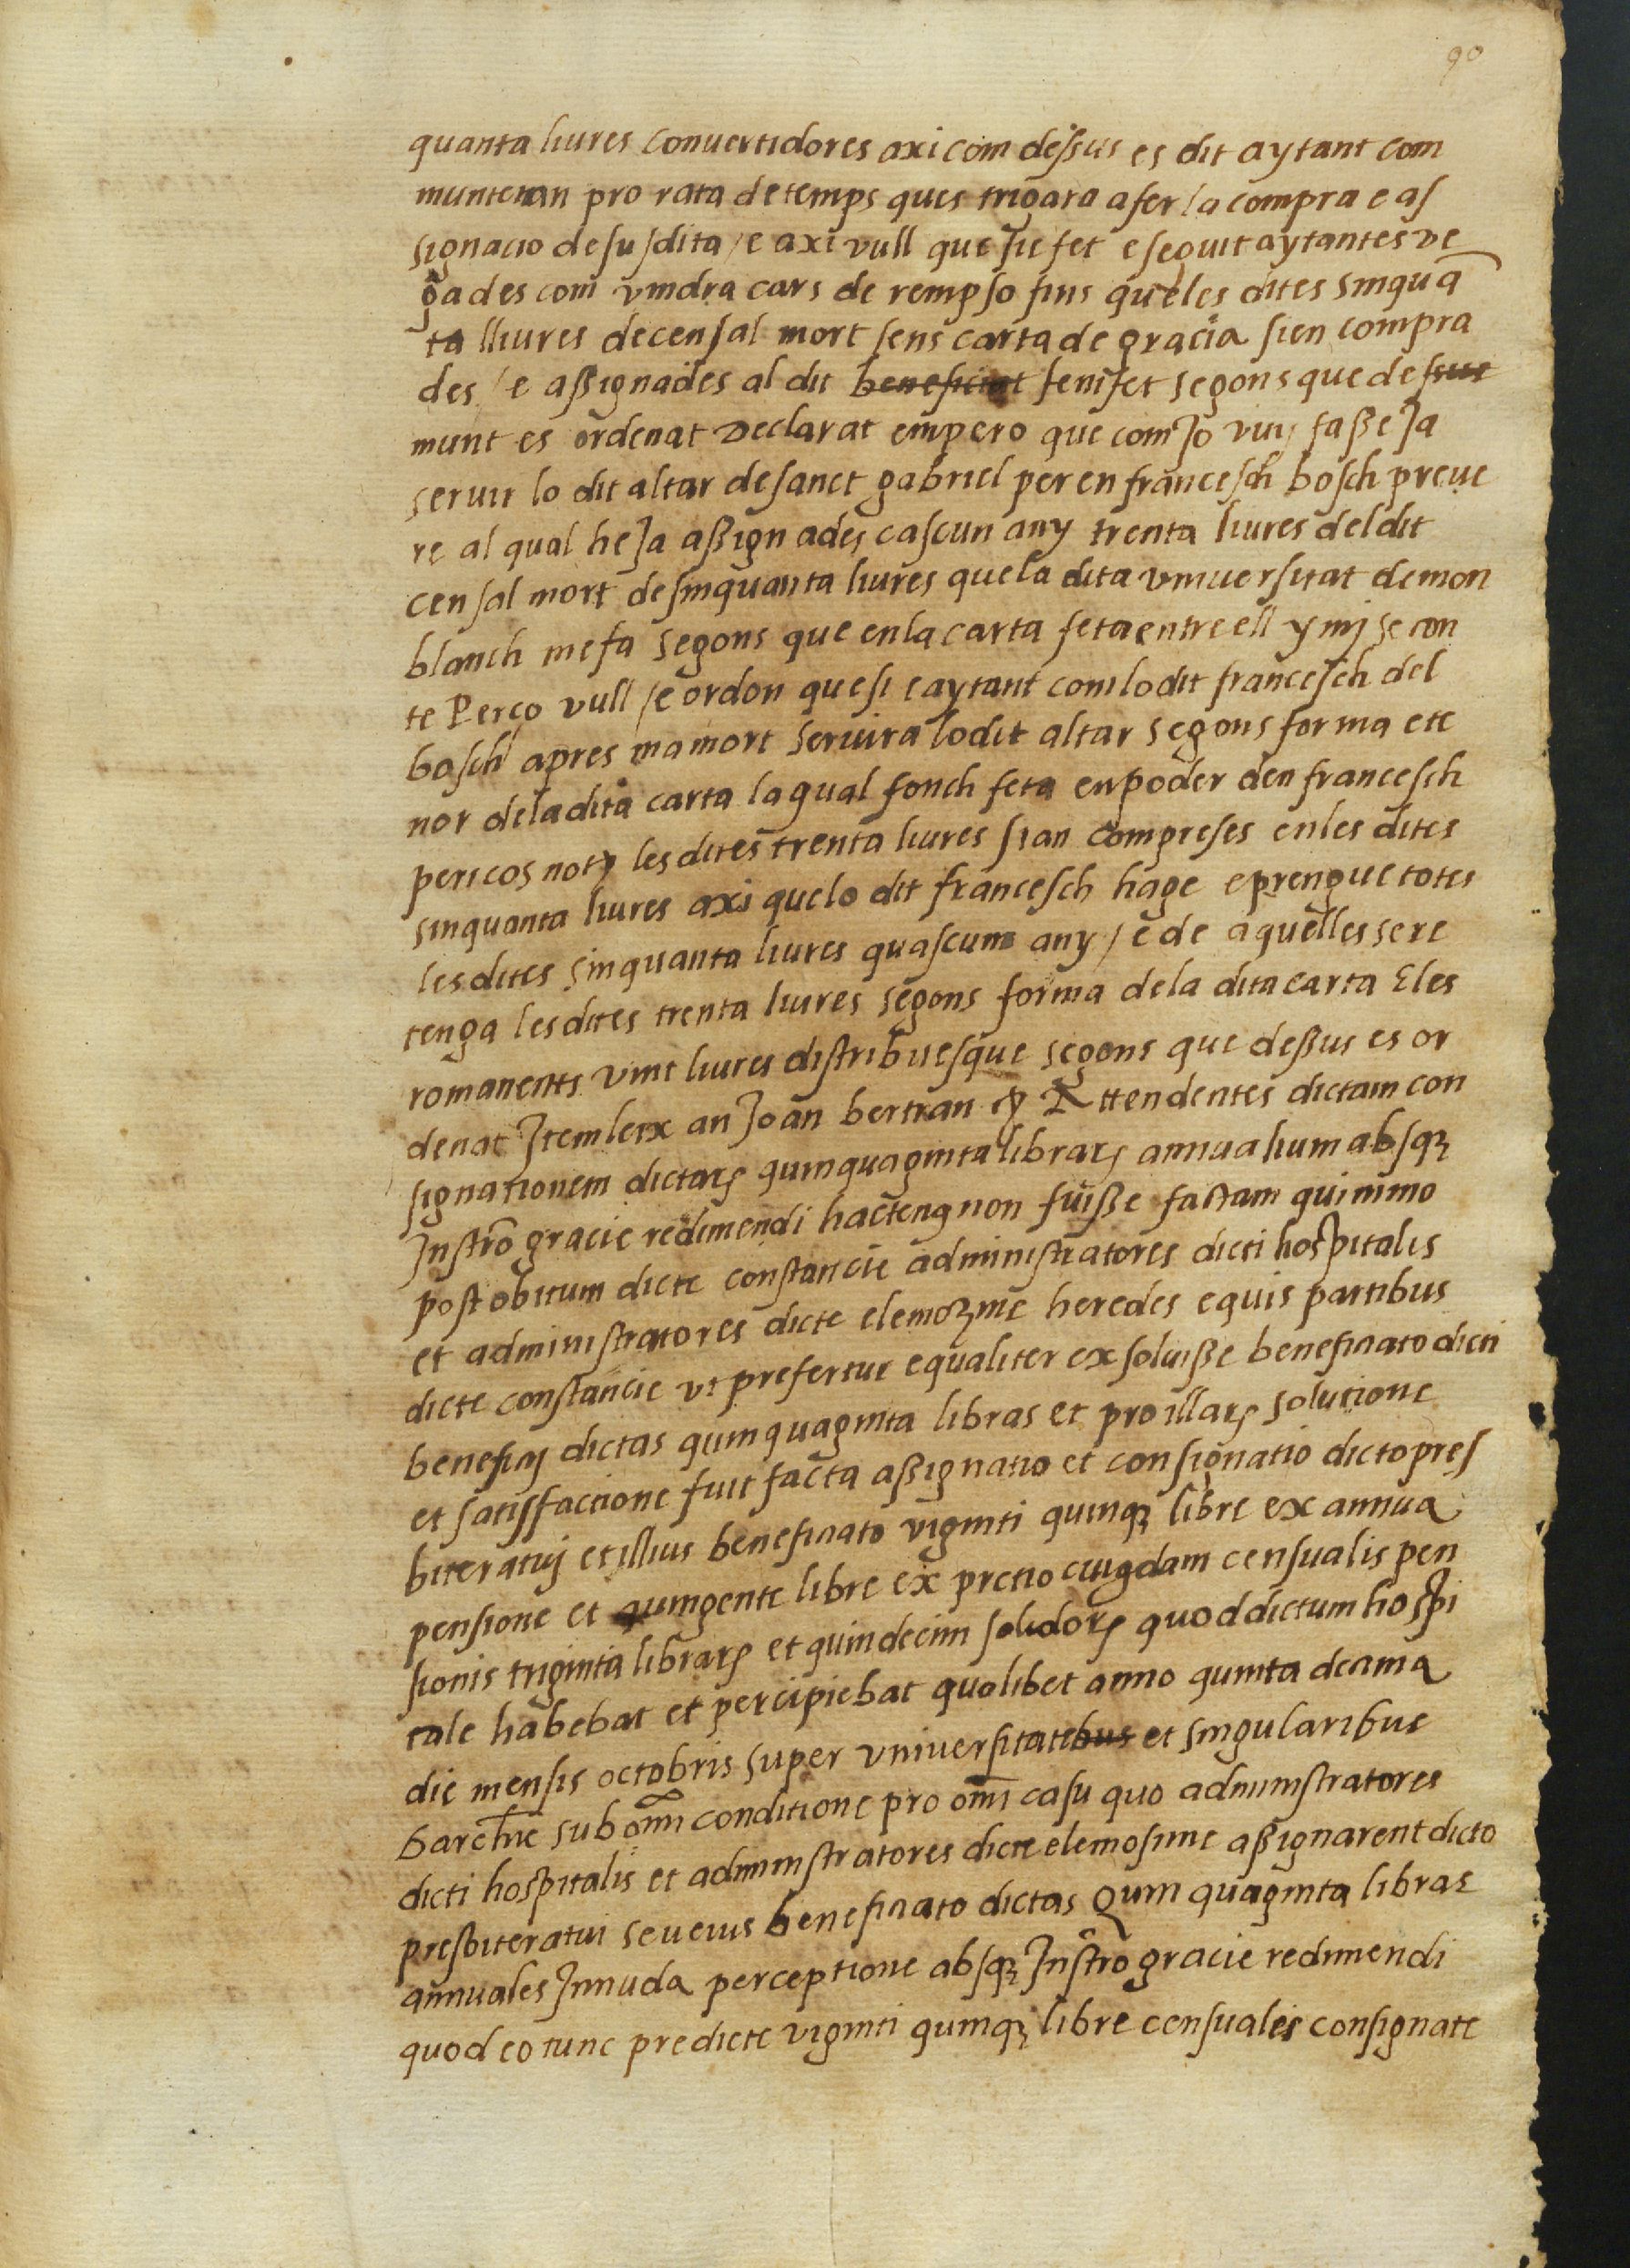 90
quanta liures conuertidores axi com dessus es dit aytant com
muntaran pro rata de temps ques trigara a fer la compra e as
signacio desusdita / e axi vull que sie fet e seguit aytantes ve
gades com vindra cars de rempso fins que les dites sinquā
ta lliures de censal mort sens carta de gracia sien compra
des / e assignades al dit beneficiat feniset segons que desus
munt es ordenat Declarat empero que com Jo vuy fasse Ja
seruir lo dit altar de sanct gabriel per en francesch bosch preue
re al qual he Ja assignades cascun any trenta liures del dit
censal mort de sinquanta liures que la dita vniuersitat de mon
blanch me fa segons que en la carta feta entre ell y mj se con
te Perço vull / e ordon que si e aytant com lo dit francesch del
bosch apres ma mort seruira lo dit altar segons forma e te
nor de la dita carta la qual fonch feta en poder den francesch
pericos noty les dites trenta liures sian compreses en les dites
sinquanta liures axi que lo dit francesch hage e prengue totes
les dites sinquanta liures quascum any / e de aquelles se re
tenga les dites trenta liures segons forma de la dita carta E les
romanents vint liures distribuesque segons que dessus es or
denat Item leix an Joan bertran ꝛc̄ Attendentes dictam con
signationem dictarꝝ quinquaginta librarꝝ annualium absqꝫ
Instrō gracie redimendi hactenꝰ non fuisse factam quinimo
post obitum dicte constancie administratores dicti hospitalis
et administratores dicte elemozine heredes equis partibus
dicte constancie vt prefertur equaliter exsoluisse beneficiato dicti
beneficij dictas quinquaginta libras et pro illarꝝ solutione
et satisffactione fuit facta assignatio et consignatio dicto pres
biteratuj et illius beneficiato viginti quinqꝫ libre ex annua
pensione et quingente libre ex pretio cuiꝰdam censualis pen
sionis triginta librarꝝ et quindecim solidorꝝ quod dictum hospi
tale habebat et percipiebat quolibet anno quinta decima
die mensis octobris super vniuersitatibus et singularibus
barchne sub omni conditione pro omni casu quo administratores
dicti hospitalis et administratores dicte elemosine assignarent dicto
presbiteratui seu eius beneficiato dictas Quinquaginta libras
annuales In nuda perceptione absqꝫ Instrō gracie redimendi
quod eo tunc predicte viginti quinqꝫ libre censuales consignate